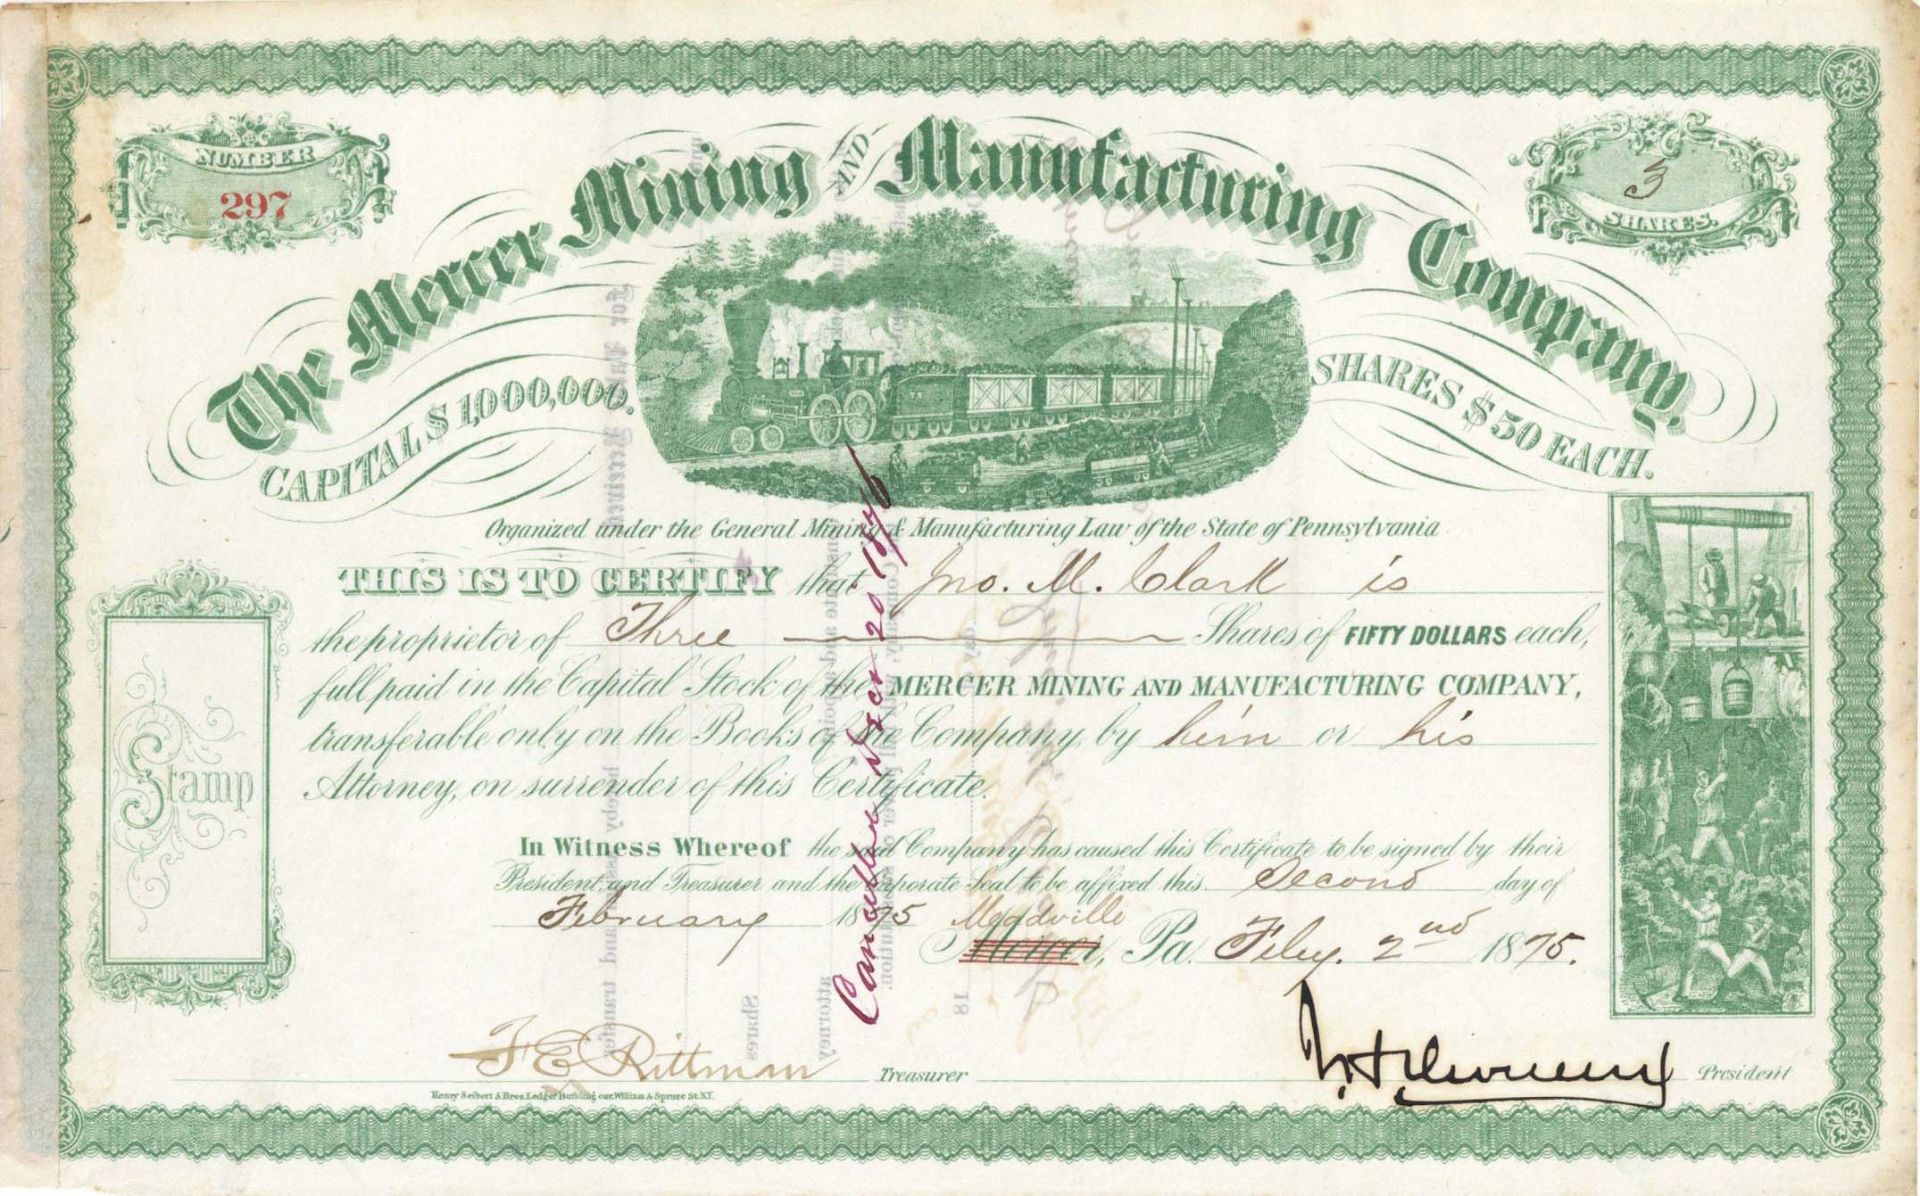 NUMBER
297
3
SHARES.
The Mercer Mining AND Manufacturing Company
CAPITAL $1,000,000.
SHARES $50 EACH.
Organized under the General Mining & Manufacturing Law of the State of Pennsylvania
THIS IS TO CERTIFY that Jno. M. Clark is
the proprietor of Three Shares of FIFTY DOLLARS each,
full paid in the Capital Stock of the MERCER MINING AND MANUFACTURING COMPANY,
transferable only on the Books of the Company, by him or his
Attorney, on surrender of this Certificate.
Stamp
In Witness Whereof the said Company has caused this Certificate to be signed by their
President, and Treasurer and the corporate Seal to be affixed this Second day of
February 1875 Meadville
Mercer, Pa. Feby. 2nd 1875.
Cancelled Decr 20 1876
F E Rittman Treasurer
President
Henry Seibert & Bros. Ledger Building cor. William & Spruce St. N.Y.